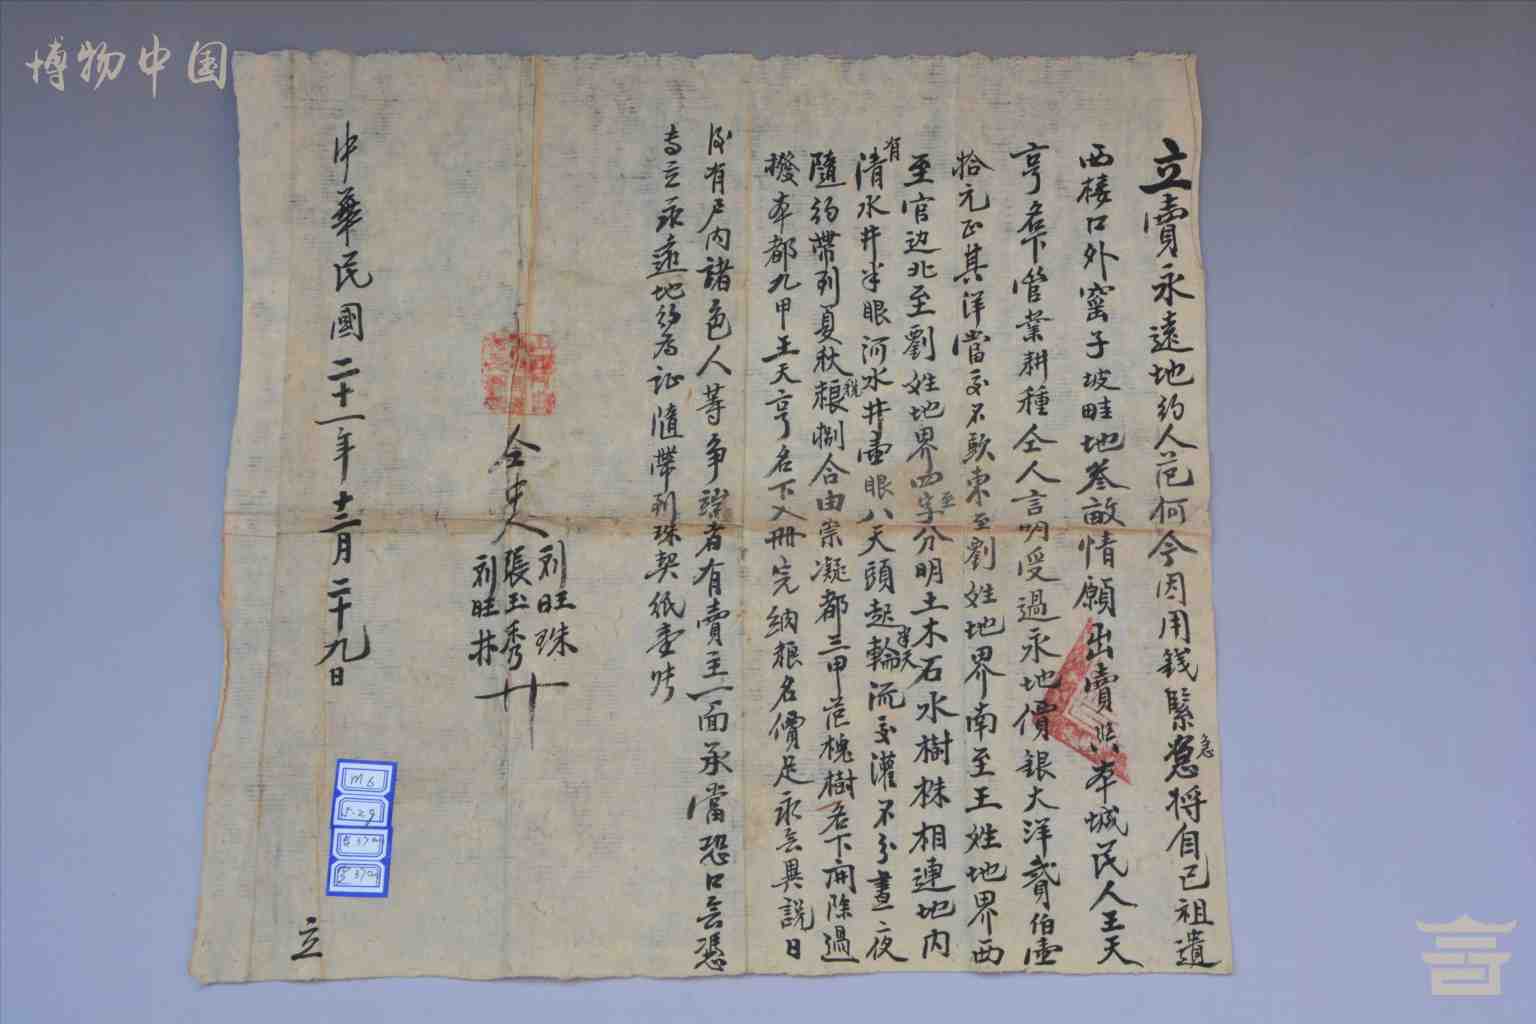 博物中国
立賣永遠地約人范何今因用錢緊急將自己祖遺
西樓口外窰子坡畦地叁畝情願出賣與本城民人王天
亨名下管業耕種仝人言明受過永地價銀大洋貳伯壺
拾元正其洋當交不欠東至劉姓地界南至王姓地界西
至官边北至劉姓地界四至字分明土木石水樹株相連地内
有清水井半眼河水井壺眼八天頭起半天輪流交灌不分晝夜
隨約帶到夏秋粮税捌合由崇凝都三甲范槐樹名下開除過
撥本都九甲王天亨名下入冊完納粮名價足永無異説日
後有戶内諸色人等争端者有賣主一面承當恐口無憑
專立永遠地約為証隨帶到珠契紙壹張
仝中人
刘旺珠
張玉秀 十
刘旺林
中華民國二十一年十二月二十九日
立
M6
5.29